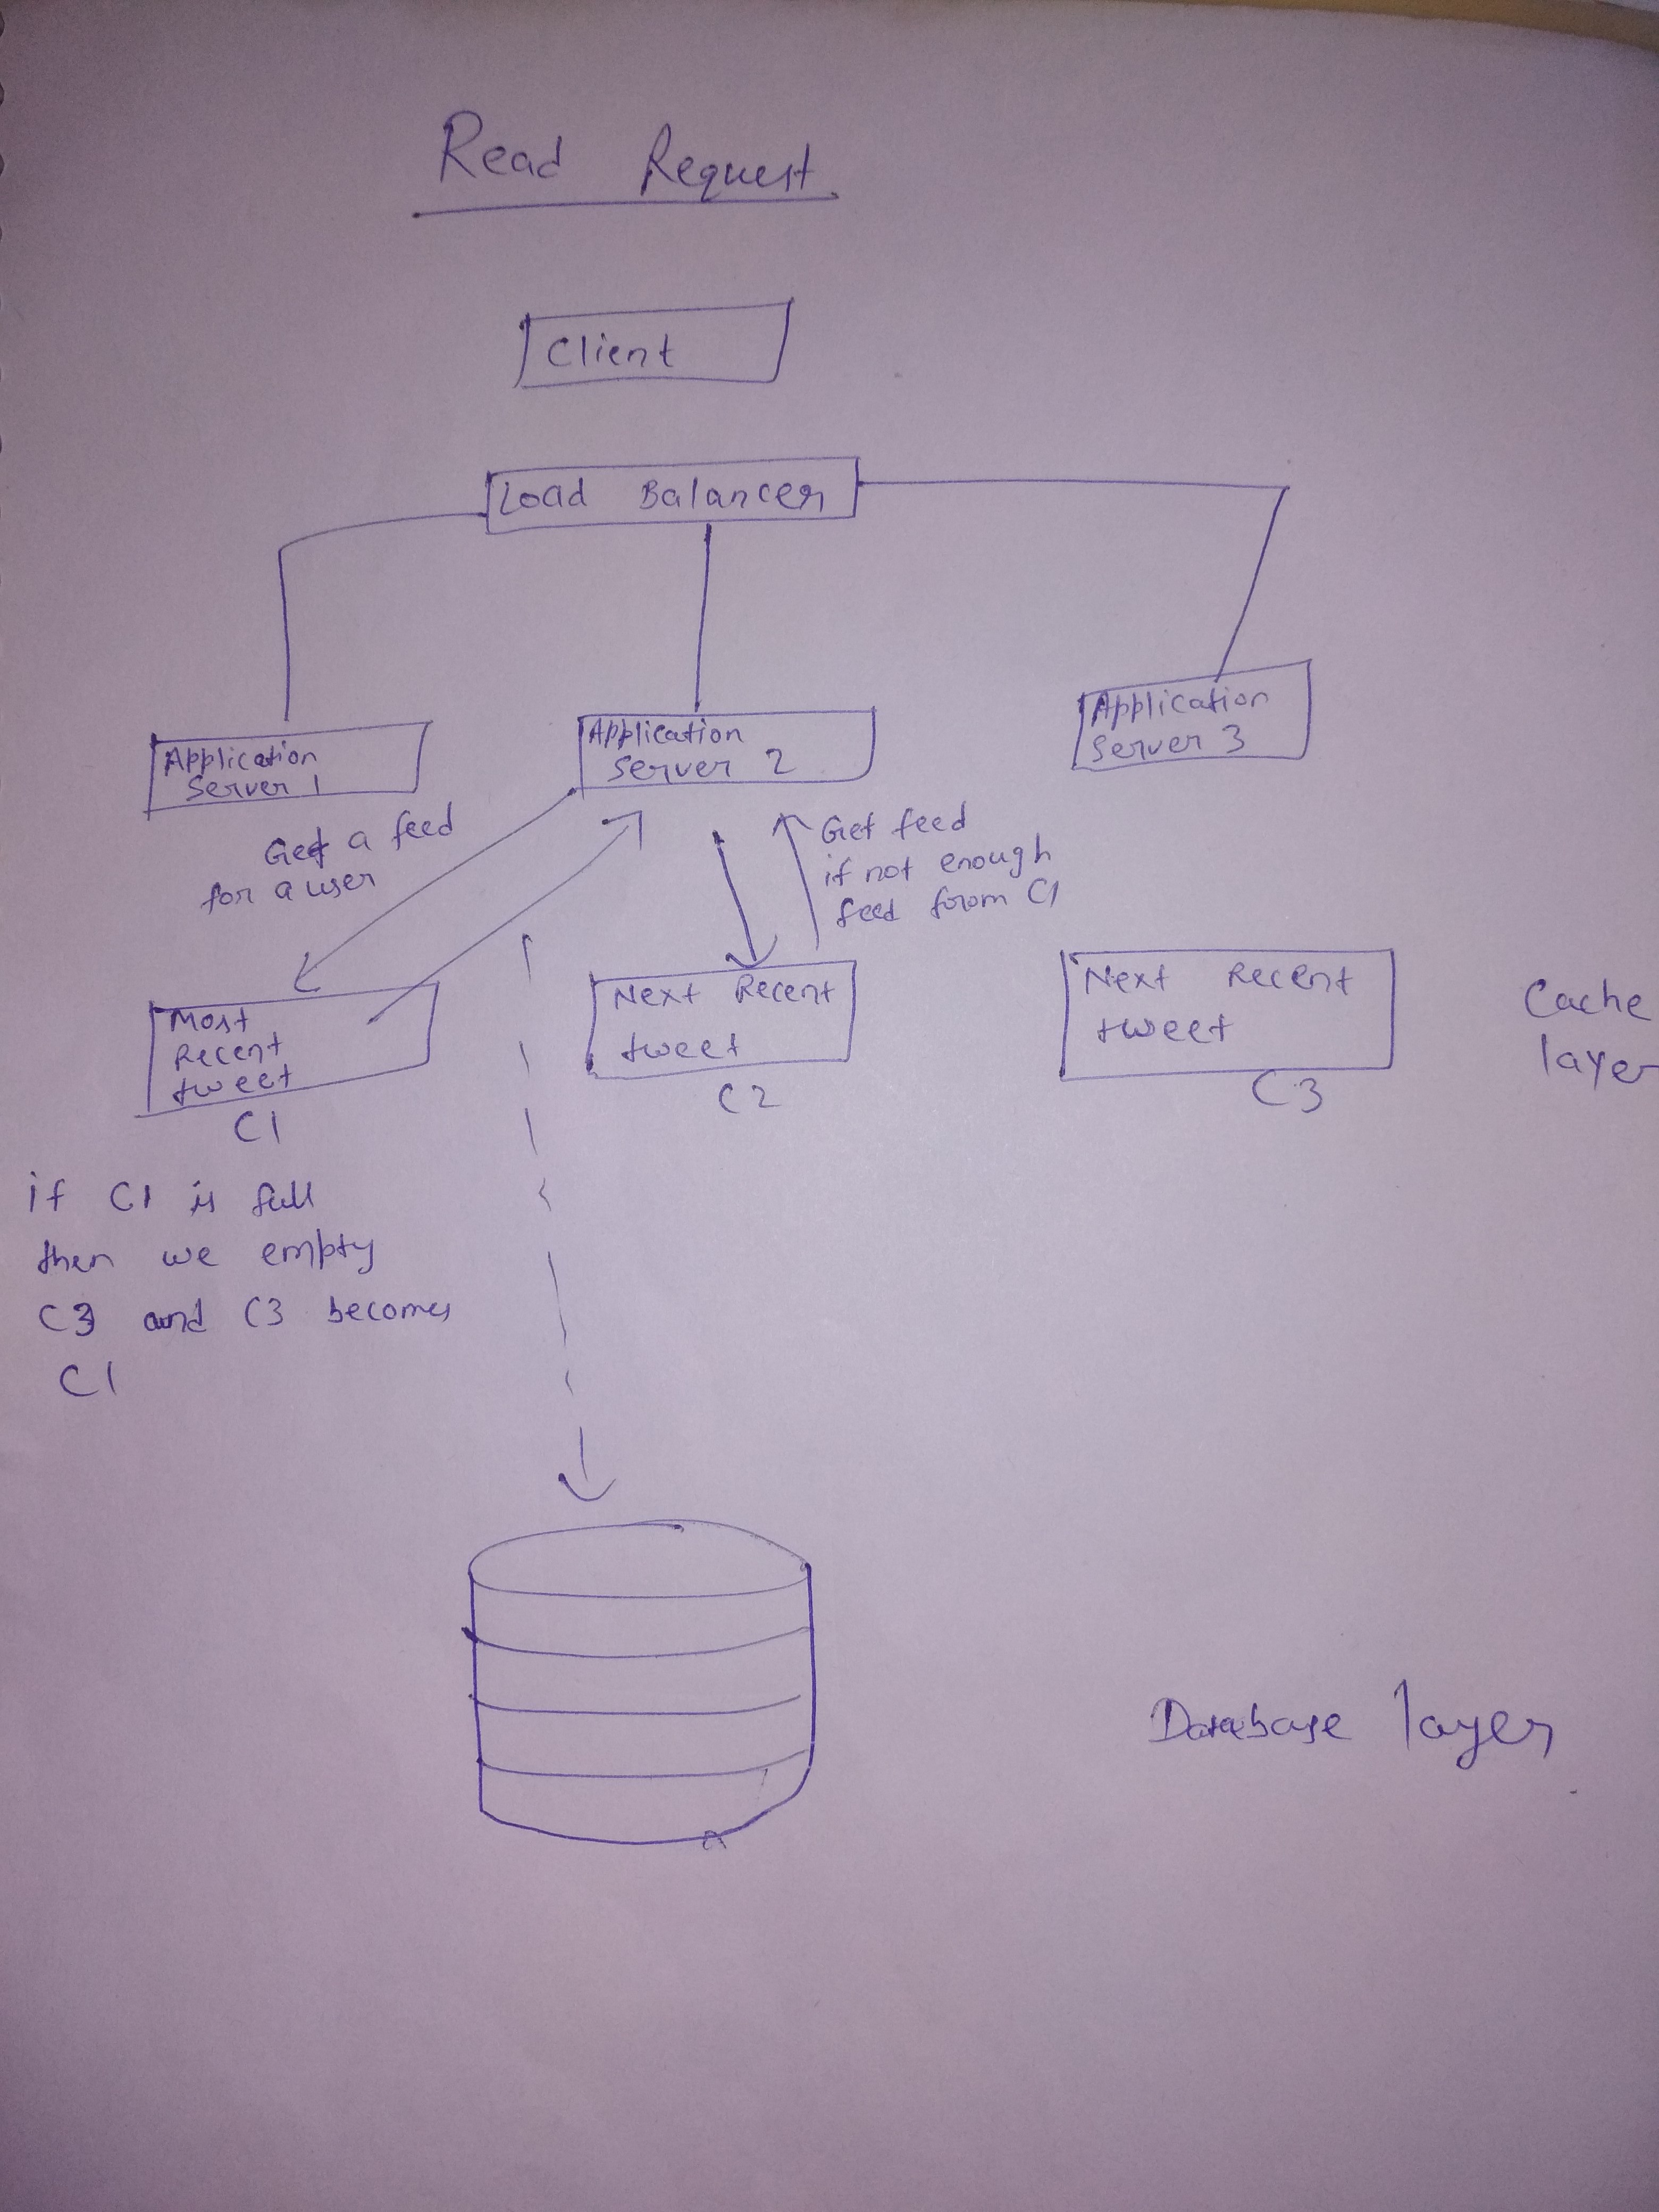 Read Request
Client
Load Balancer
Application
Server 1
Application
Server 2
Application
Server 3
Get a feed
for a user
Get feed
if not enough
feed from C1
Most
Recent
tweet
C1
Next Recent
tweet
C2
Next Recent
tweet
C3
Cache
layer
if C1 is full
then we empty
C3 and C3 becomes
C1
Database layer